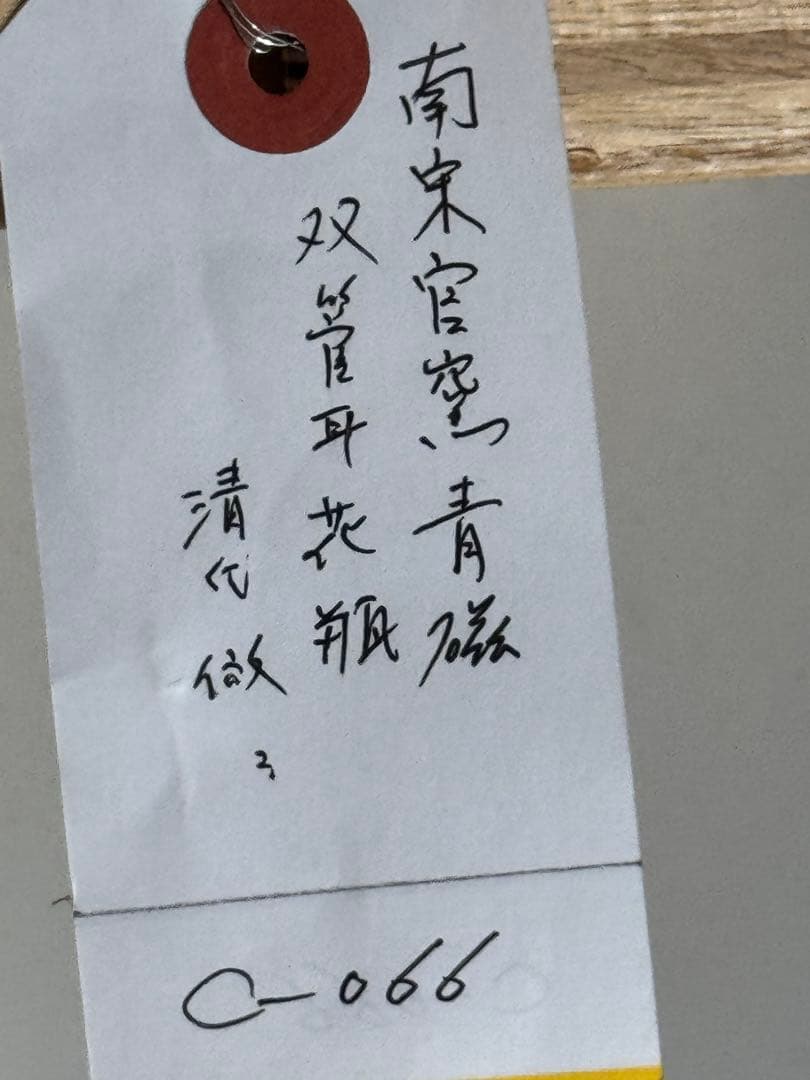 南宋官窯青磁
双管耳花瓶
清代倣
C-066